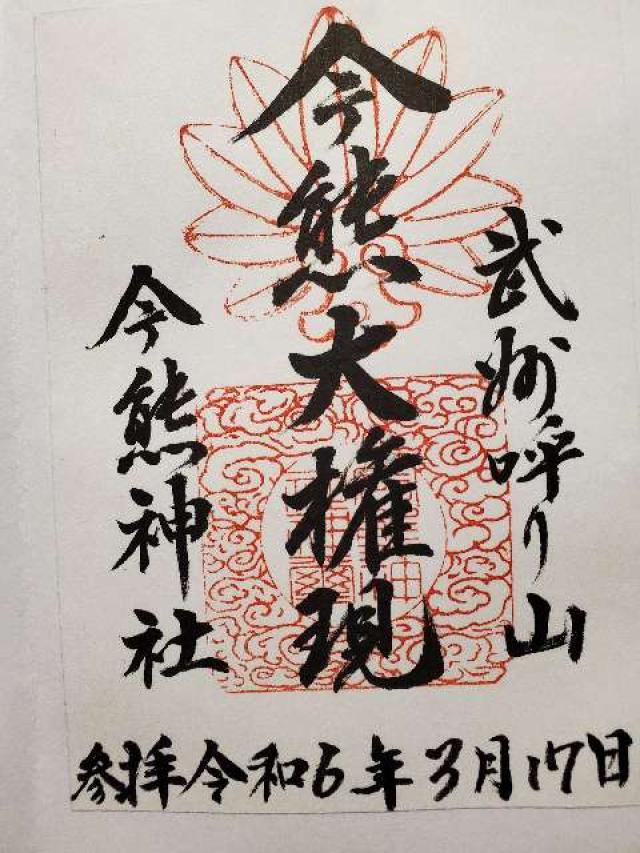 武州呼り山
今熊大権現
今熊神社
参拝令和6年3月17日